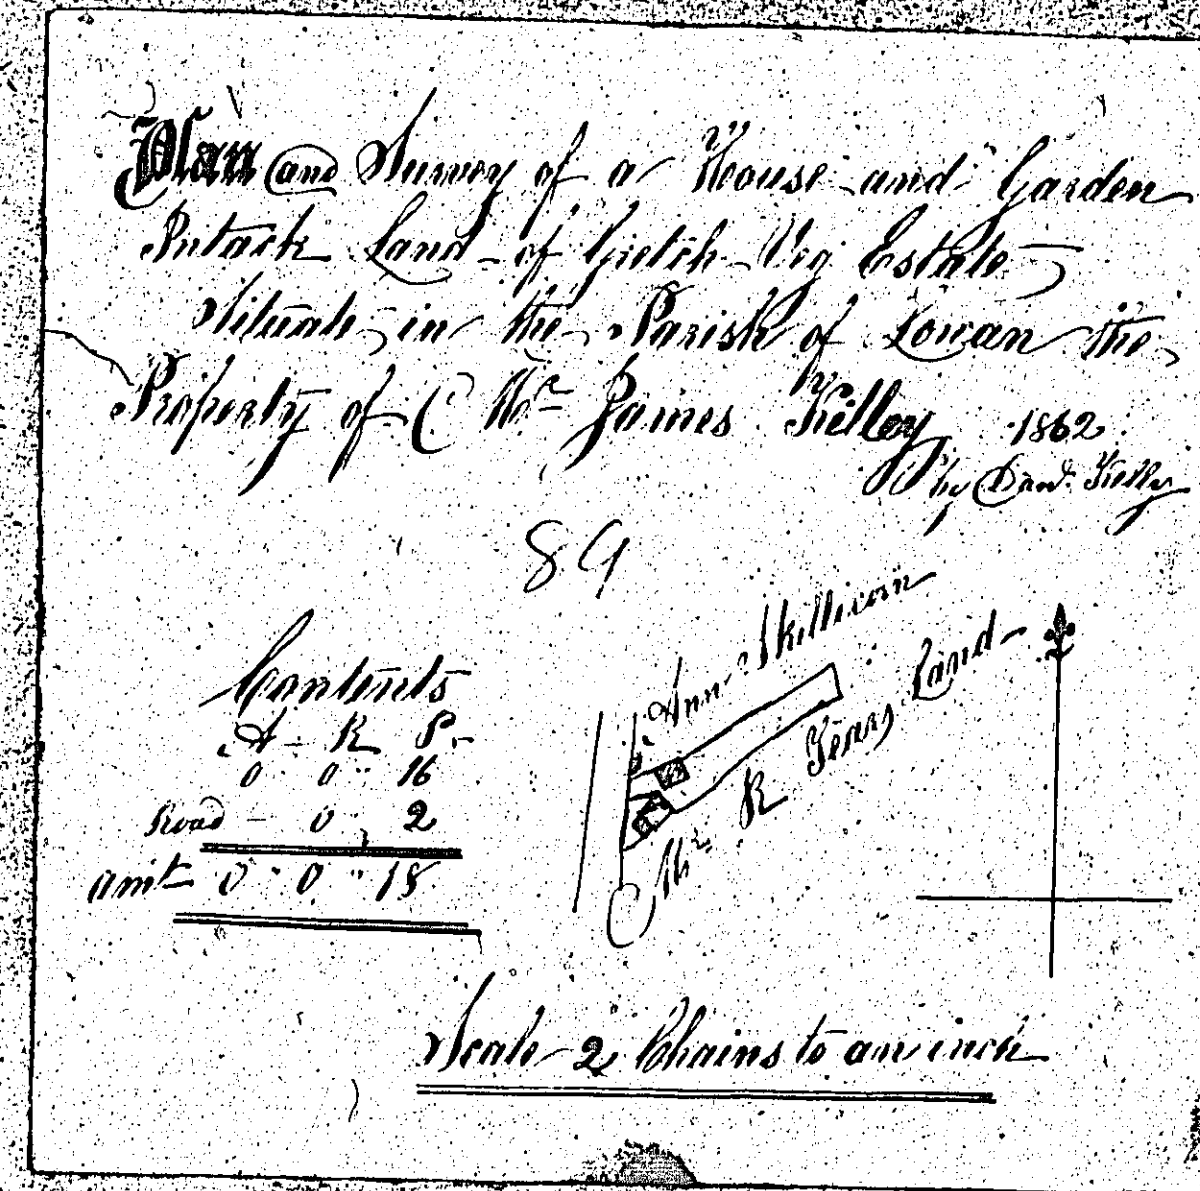 Plan and Survey of a House and Garden
Intack Land of Gretch Veg Estate
Situate in the Parish of Lonan the
Property of Mr James Kelley 1862
by Dawd. Kelly
89
Contents
A R P.
0 0 16
Road 0 2
amt 0 0 18
Ann Skillicorn
Mr R Land
Scale 2 Chains to an inch